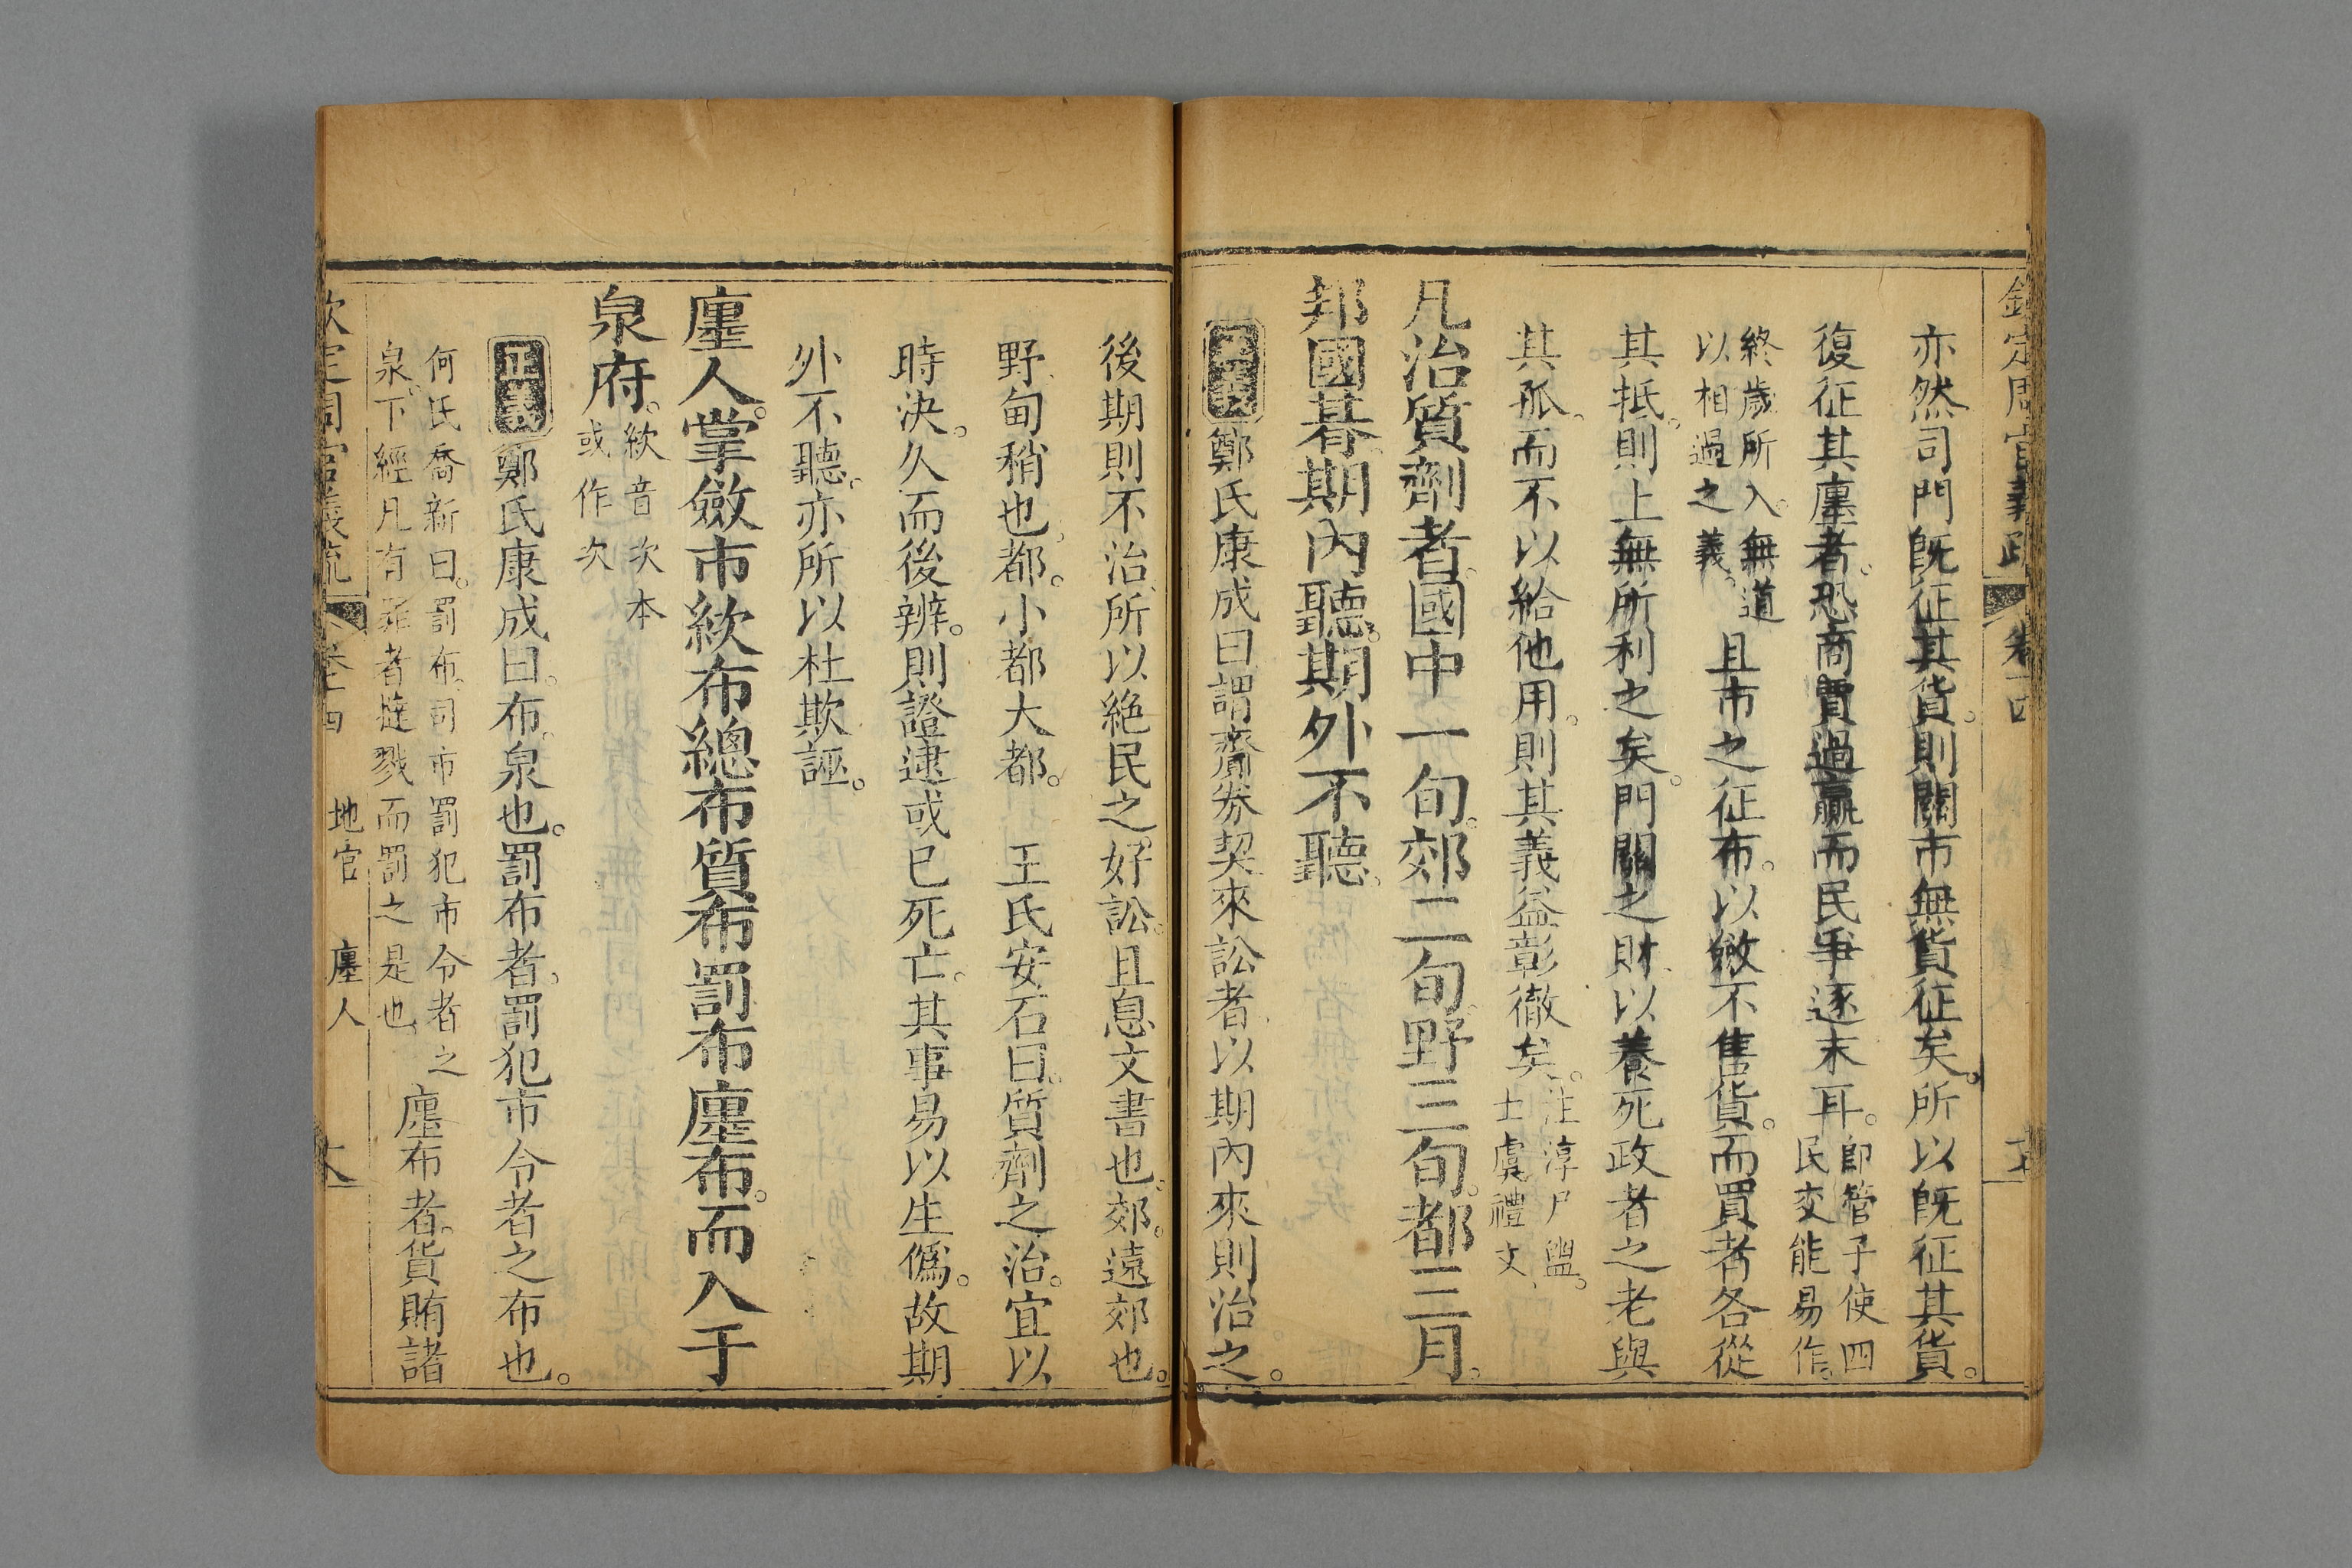 欽定周官義疏 卷十四
亦然司門既征其貨。則關市無貨征矣。所以既征其貨。
復征其廛者。恐商賈過贏而民爭逐末耳。即管子使四民交能易作。
終歲所入。無道以相過之義。且市之征布。以斂不售貨。而買者各從
其抵。則上無所利之矣。門關之財。以養死政者之老與
其孤。而不以給他用。則其義益彰徹矣。注淳尸盥。士虞禮文。
凡治質劑者。國中一旬。郊二旬。野三旬。都三月。
邦國朞。期內聽。期外不聽。
鄭氏康成曰。謂齎券契來訟者。以期內來則治之。
後期則不治。所以絶民之好訟。且息文書也。郊。遠郊也。
野。甸稍也。都。小都大都。 王氏安石曰。質劑之治。宜以
時決。久而後辨。則證逮或已死亡。其事易以生僞。故期
外不聽。亦所以杜欺誣。
廛人。掌斂市絘布緫布質布罰布廛布。而入于
泉府。絘音次本或作次
正義 鄭氏康成曰。布。泉也。罰布者。罰犯市令者之布也。
何氏喬新曰。罰布。司市罰犯市令者之泉。下經凡有罪者撻戮而罰之是也 廛布者。貨賄諸
欽定周官義疏 卷十四 地官 廛人